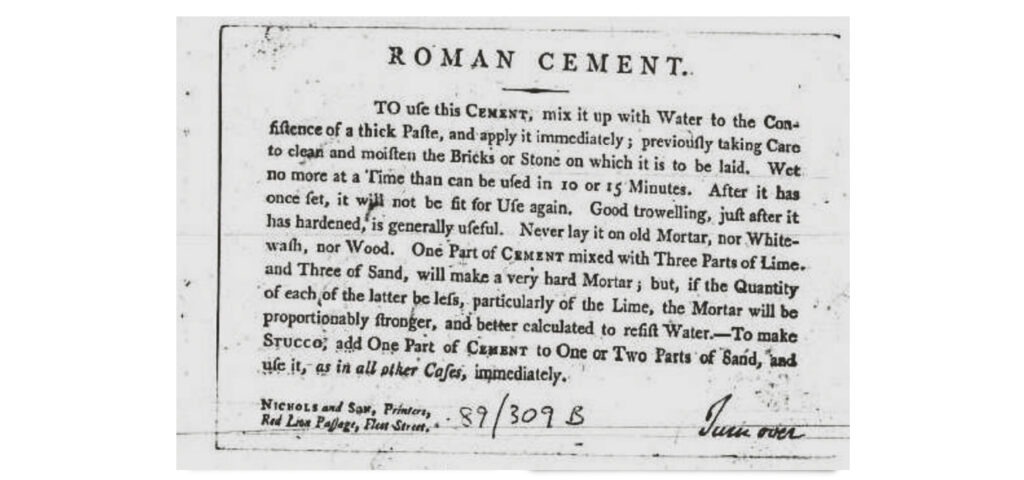 ROMAN CEMENT.
TO uſe this CEMENT, mix it up with Water to the Con-
ſiſtence of a thick Paſte, and apply it immediately; previouſly taking Care
to clean and moiſten the Bricks or Stone on which it is to be laid. Wet
no more at a Time than can be uſed in 10 or 15 Minutes. After it has
once ſet, it will not be fit for Uſe again. Good trowelling, juſt after it
has hardened, is generally uſeful. Never lay it on old Mortar, nor White-
waſh, nor Wood. One Part of CEMENT mixed with Three Parts of Lime.
and Three of Sand, will make a very hard Mortar; but, if the Quantity
of each of the latter be leſs, particularly of the Lime, the Mortar will be
proportionably ſtronger, and better calculated to reſiſt Water.—To make
STUCCO, add One Part of CEMENT to One or Two Parts of Sand, and
uſe it, as in all other Caſes, immediately.
NICHOLS and SON, Printers,
Red Lion Paſſage, Fleet-Street.
89/309 B
Turn over